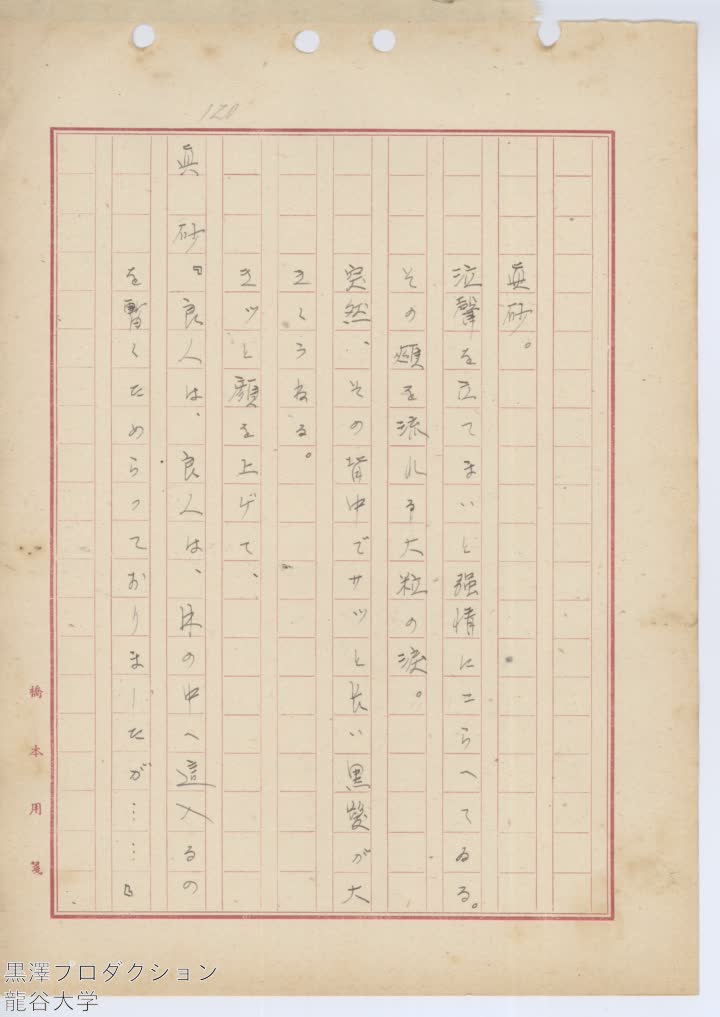 120
真砂。
泣聲を立てまいと強情にこらへてゐる。
その頬を流れる大粒の涙。
突然、その背中でサッと長い黒髪が大
きくうねる。
キッと顔を上げて、
真砂『良人は、良人は、床の中へ這入るの
を暫くためらっておりましたが……』
橋本用箋
黒澤プロダクション
龍谷大学